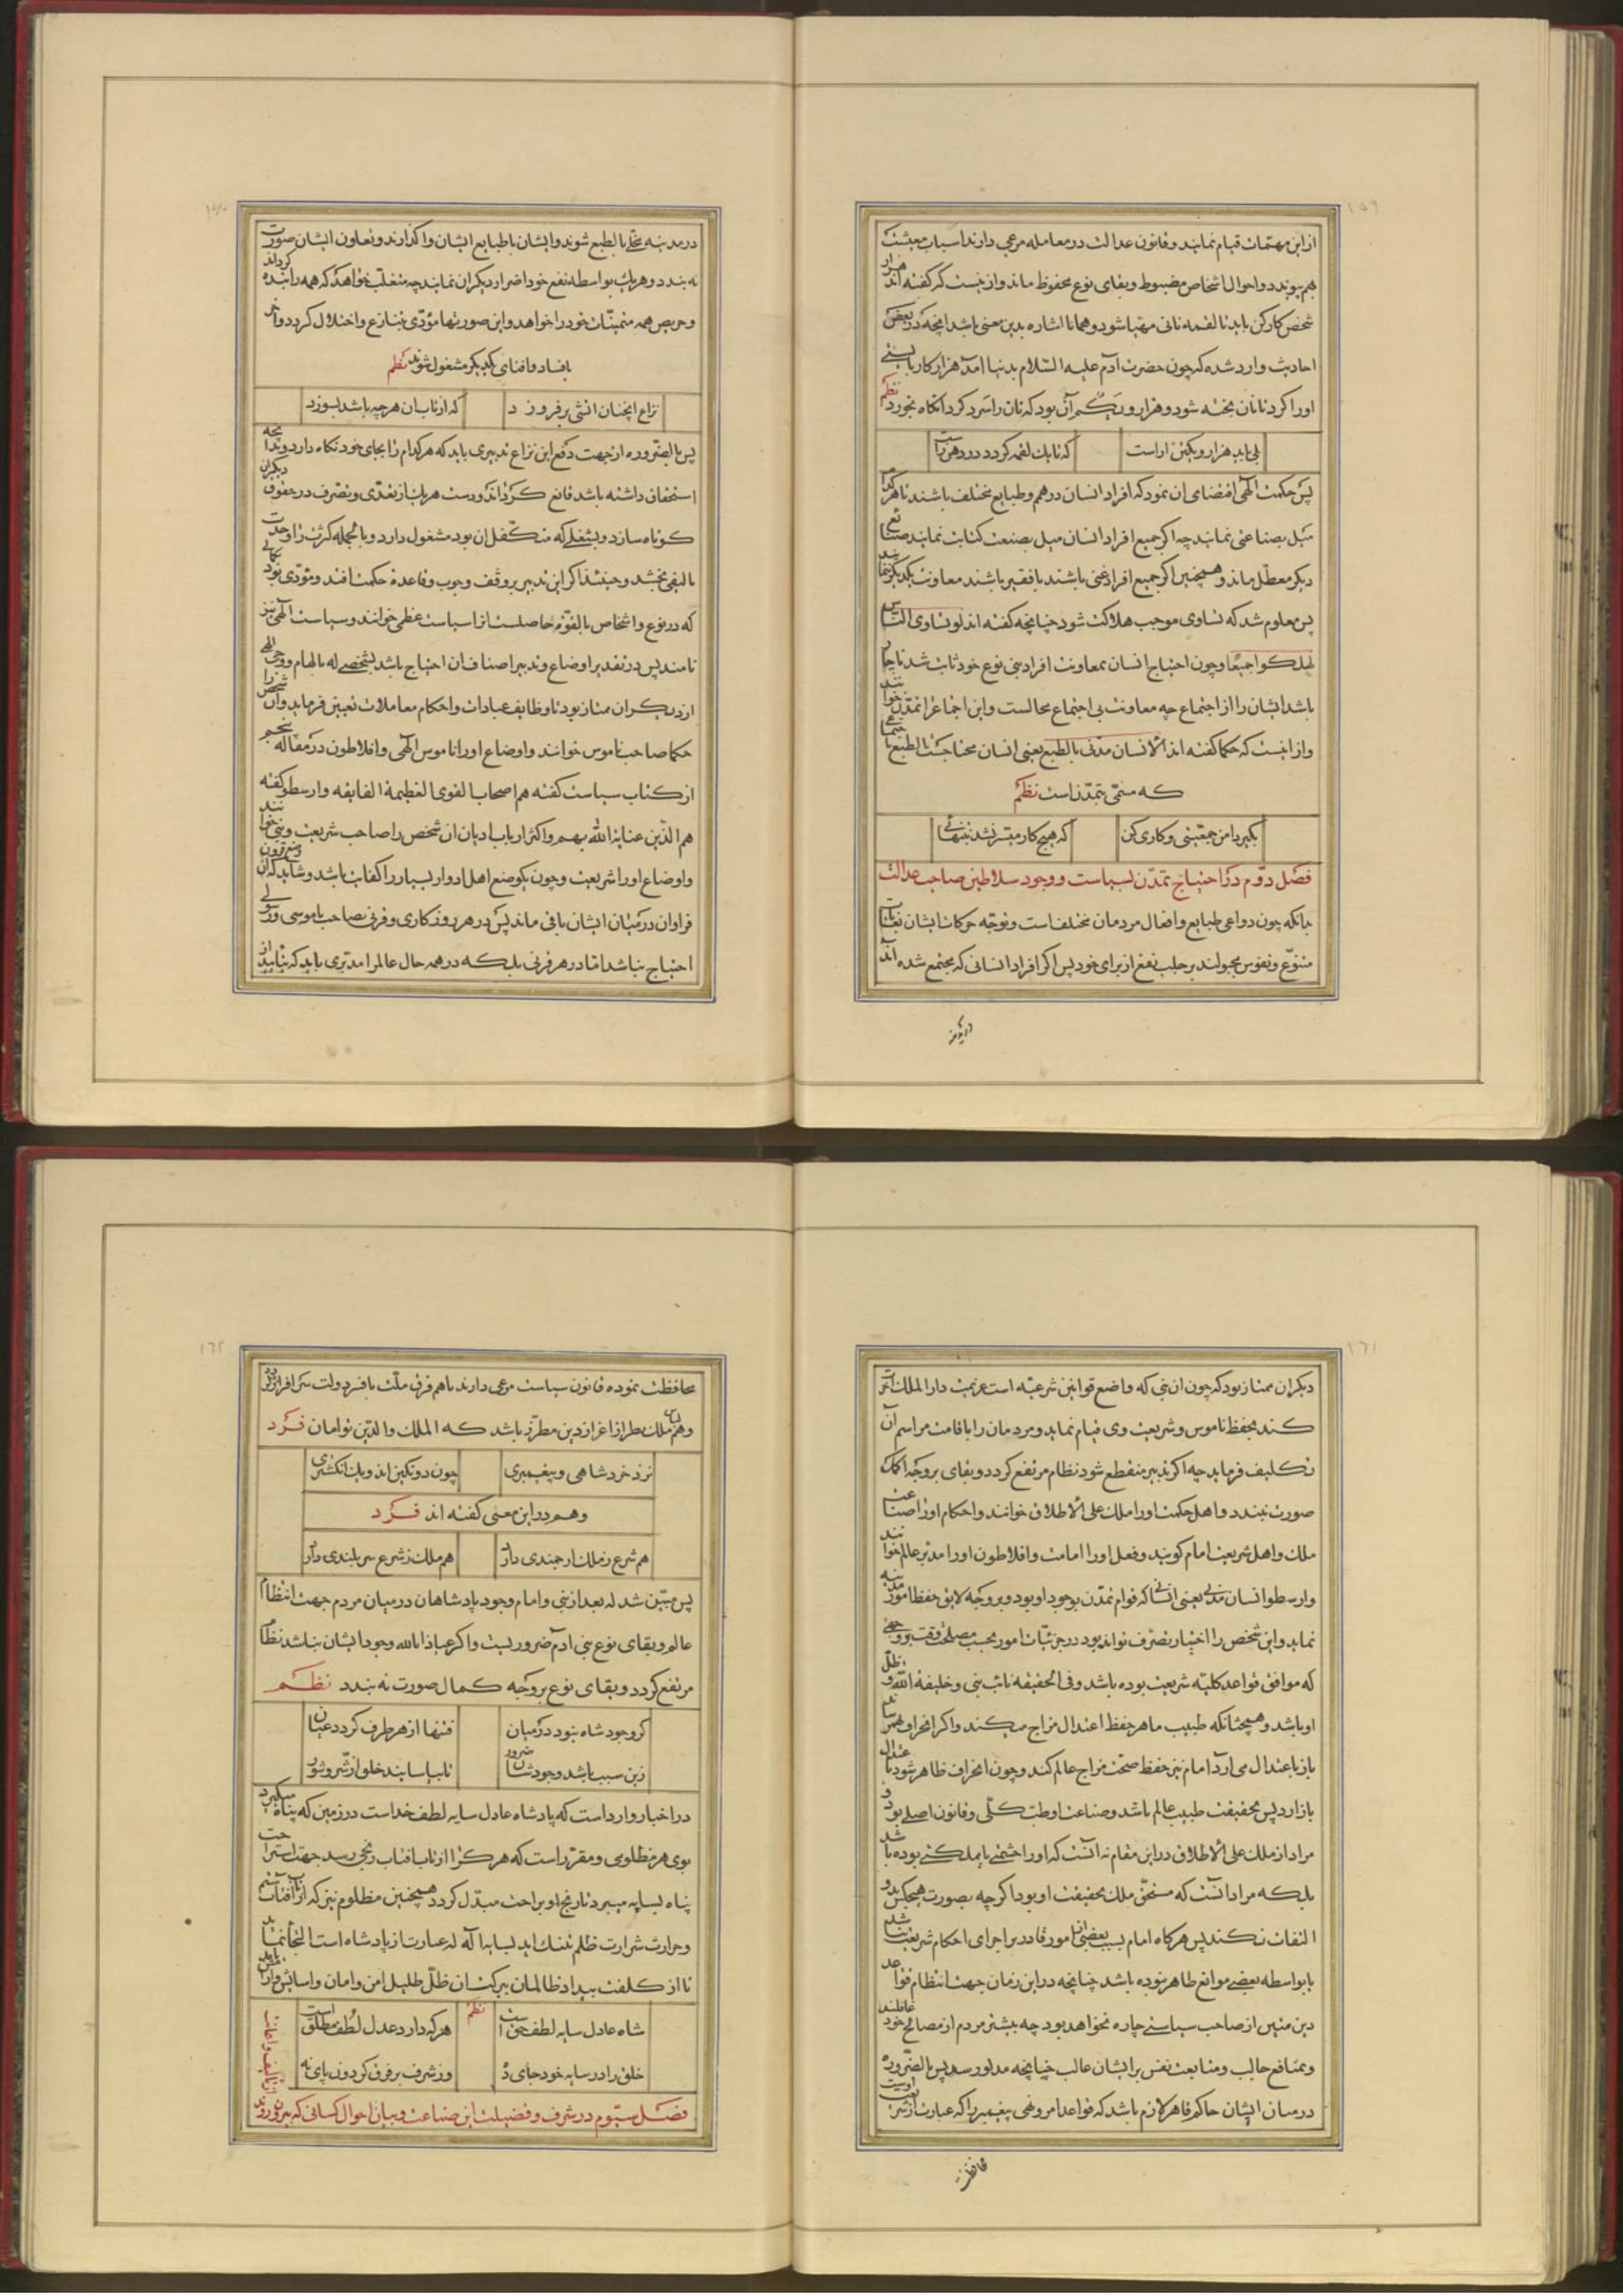 ۱۵۹
ازین مهمّات قیام نمایند و قانون عدالت در معامله مرعی دارند اسباب معیشت
بهم پیوندد و احوال اشخاص مضبوط و بقای نوع محفوظ ماند و ازینست که گفته‌اند هزار
شخص کارکن باید تا لقمه نانی مهیّا شود و همانا اشاره بدین معنی باشد آنچه در بعض
احادیث وارد شده که چون حضرت آدم علیه السّلام بدنیا آمد هزار کار بایستی
او را کرد تا نان پخته شود و هزار و یکم آن بود که نان را سرد کرد آنگاه بخورد نظم
بلی باید هزار و یکتن آراست
که تا یک لقمه گردد در دهن راست
پس حکمت الهی اقتضای آن نمود که افراد انسان در همم و طبایع مختلف باشند تا هر کدام
میل بصناعتی نمایند چه اگر جمیع افراد انسان میل بصنعت کتابت نمایند صنایع
دیگر معطّل ماند و همچنین اگر جمیع افراد غنی باشند یا فقیر باشند معاونت یکدیگر ننمایند
پس معلوم شد که تساوی موجب هلاکت شود چنانچه گفته اند لو تساوی النّاس
لهلکوا جمیعا و چون احتیاج انسان بمعاونت افراد بنی نوع خود ثابت شد ناچار
باشد ایشان را از اجتماع چه معاونت بی اجتماع محالست و این اجتماع را تمدّن خوانند
و از اینست که حکما گفته اند الانسان مدنی بالطبع یعنی انسان محتاجست بالطبع باجتماعی
که مسمّی بتمدّن است نظم
بگیر دامن جمعیّتی و کاری کن
که هیچ کار میسّر نشد بتنهائی
فصل دوّم در احتیاج تمدّن بسیاست و وجود سلاطین صاحب عدالت
بدانکه چون دواعی طبایع و افعال مردمان مختلف است و توجّه حرکات ایشان بغایات
متنوّع و نفوس مجبولند بر جلب نفع از برای خود پس اگر افراد انسانی که مجتمع شده اند
در مدینه
۱۶۰
در مدینه مخلّی بالطبع شوند و ایشان با طبایع ایشان واگذارند و تعاون ایشان صورت
نه بندد و هریک بواسطه نفع خود اضرار دیگران نمایند چه متغلّب خواهد که همه را بنده گرداند
و حریص همه مقتنیّات خود را خواهد و این صورتها مؤدّی بتنازع و اختلال گردد و آخر
بافساد و افنای یکدیگر مشغول شوند نظم
نزاع آنچنان آتشی برفروزد
که از تاب آن هرچه باشد بسوزد
پس بالضّروره از جهت دفع این نزاع تدبیری باید که هر کدام را بجای خود نگاه دارد و بدانچه
استحقاق داشته باشد قانع گرداند و دست هریک از تعدّی و تصرف در حقوق دیگران
کوتاه سازد و بشغلی که متکفّل آن بود مشغول دارد و بالجمله کثرت را وحدت
تالیفی بخشد و حینئذ اگر این تدبیر بر وفق وجوب و قاعده حکمت افتد و مؤدّی بکمالی بود
که در نوع و اشخاص بالقوّه حاصلست آنرا سیاست عظمی خوانند و سیاست الهی نیز
نامند پس در تقدیر اوضاع و تدبیر اصناف آن احتیاج باشد بشخصی که بالهام و وحی الهی
از دیگران ممتاز بود تا وظایف عبادات و احکام معاملات تعیین فرماید و آن شخص را
حکما صاحب ناموس خوانند و اوضاع او را ناموس الهی و افلاطون در مقاله پنجم
از کتاب سیاست گفته هم اصحاب القوی العظیمة الفایقه و ارسطو گفته
هم الّذین عنایة الله بهم و اکثر ارباب ادیان آن شخص را صاحب شریعت و نبی خوانند
و اوضاع او را شریعت و چون یکوضع اهل ادوار بسیار را کفایت باشد و شاید که آن وضع قرون
فراوان در میان ایشان باقی ماند پس در هر روزگاری و قرنی بصاحب ناموسی و رسولی
احتیاج نباشد امّا در هر قرنی بلکه در همه حال عالم را مدبّری باید که بتایید از
۱۶۱
دیگران ممتاز بود که چون آن نبی که واضع قوانین شرعیّه است عزیمت دار الملک آخرت
کند بحفظ ناموس و شریعت وی قیام نماید و مردمان را باقامت مراسم آن
تکلیف فرماید چه اگر تدبیر منقطع شود نظام مرتفع گردد و بقای بر وجه اکمل
صورت نبندد و اهل حکمت او را ملک علی الاطلاق خوانند و احکام او را صناعت
ملک و اهل شریعت امام گویند و فعل او را امامت و افلاطون او را مدبّر عالم خوانند
و ارسطو انسان مدنی یعنی انسانی که قوام تمدّن بوجود او بود و بر وجه لایق حفظ امور مدینه
نماید و این شخص را اختیار تصرّف تواند بود در جزئیّات امور بحسب مصلحت وقت بر وجهی
که موافق قواعد کلیّه شریعت بوده باشد و فی الحقیقه نائب نبی و خلیفة الله و ظلّ
او باشد و همچنانکه طبیب ماهر حفظ اعتدال مزاج میکند و اگر انحراف بهم رساند
باز باعتدال می آرد امام نیز حفظ صحّت مزاج عالم کند و چون انحراف ظاهر شود باعتدال
باز آرد پس بحقیقت طبیب عالم باشد و صناعت او طبّ کلّی و قانون اصلی بود و
مراد از ملک علی الاطلاق در این مقام نه آنست که او را حشمتی یا مملکتی بوده باشد
بلکه مراد آنست که مستحقّ ملک بحقیقت او بود اگرچه بصورت هیچکس بدو
التفات نکند پس هرگاه امام بسبب بعضی از امور قادر بر اجرای احکام شریعت نباشد
یا بواسطه بعضی موانع ظاهر نبوده باشد چنانچه در این زمان جهت انتظام قواعد
دین متین از صاحب سیاستی چاره نخواهد بود چه بیشتر مردم از مصالح خود غافلند
و بمنافع جالب و متابعت نفس بر ایشان غالب چنانچه مذکور شد پس بالضّروره
در میان ایشان حاکم قاهر لازم باشد که قواعد امر و نهی پیغمبر را که عبارت از شریعت اوست
محافظت
۱۶۲
محافظت نموده قانون سیاست مرعی دارند تا هم فرق ملّت بافسر دولت سرافراز گردد
و هم لباس ملک بطراز اعزاز دین مطرّز باشد که الملک و الدّین توامان فرد
نزد خرد شاهی و پیغمبری
چون دو نگین اند و یک انگشتری
و هم در این معنی گفته اند فرد
هم شرع ز ملک ارجمندی دارد
هم ملک ز شرع سربلندی دارد
پس مبیّن شد که بعد از نبی و امام وجود پادشاهان در میان مردم جهت انتظام
عالم و بقای نوع بنی آدم ضروریست و اگر عیاذا بالله وجود ایشان نباشد نظام
مرتفع گردد و بقای نوع بر وجه کمال صورت نه بندد نظم
گر وجود شاه نبود در میان
فتنها از هر طرف گردد عیان
زین سبب باشد وجود شان ضرور
تا بیاسایند خلق از شرّ و شور
در اخبار وارد است که پادشاه عادل سایه لطف خداست در زمین که پناه میگیرد
بوی هر مظلومی و مقرّر است که هر کرا از تاب آفتاب رنجی رسد جهت استراحت
پناه بسایه میبرد تا رنج او براحت مبدّل گردد همچنین مظلوم نیز که از تاب آفتاب ستم
و حرارت شرارت ظلم بتنک آید بسایه اله که عبارت از پادشاه است التجا نماید
تا از کلفت بیداد ظالمان ببرکت آن ظلّ ظلیل امن و امان و آسایش یابد
نظم
شاه عادل سایه لطف حق است
هرکه دارد عدل لطف مطلق است
خلق را در سایه خود جای ده
وز شرف بر فرق گردون پای نه
فصل سیّوم در شرف و فضیلت این صناعت و بیان احوال کسانی که